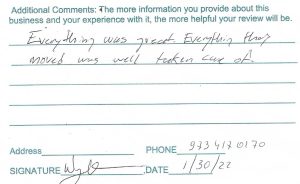 Additional Comments: The more information you provide about this
business and your experience with it, the more helpful your review will be.
Everything was great Everything they
moved was well taken care of.
Address PHONE 973 417 0170
SIGNATURE DATE 1/30/22